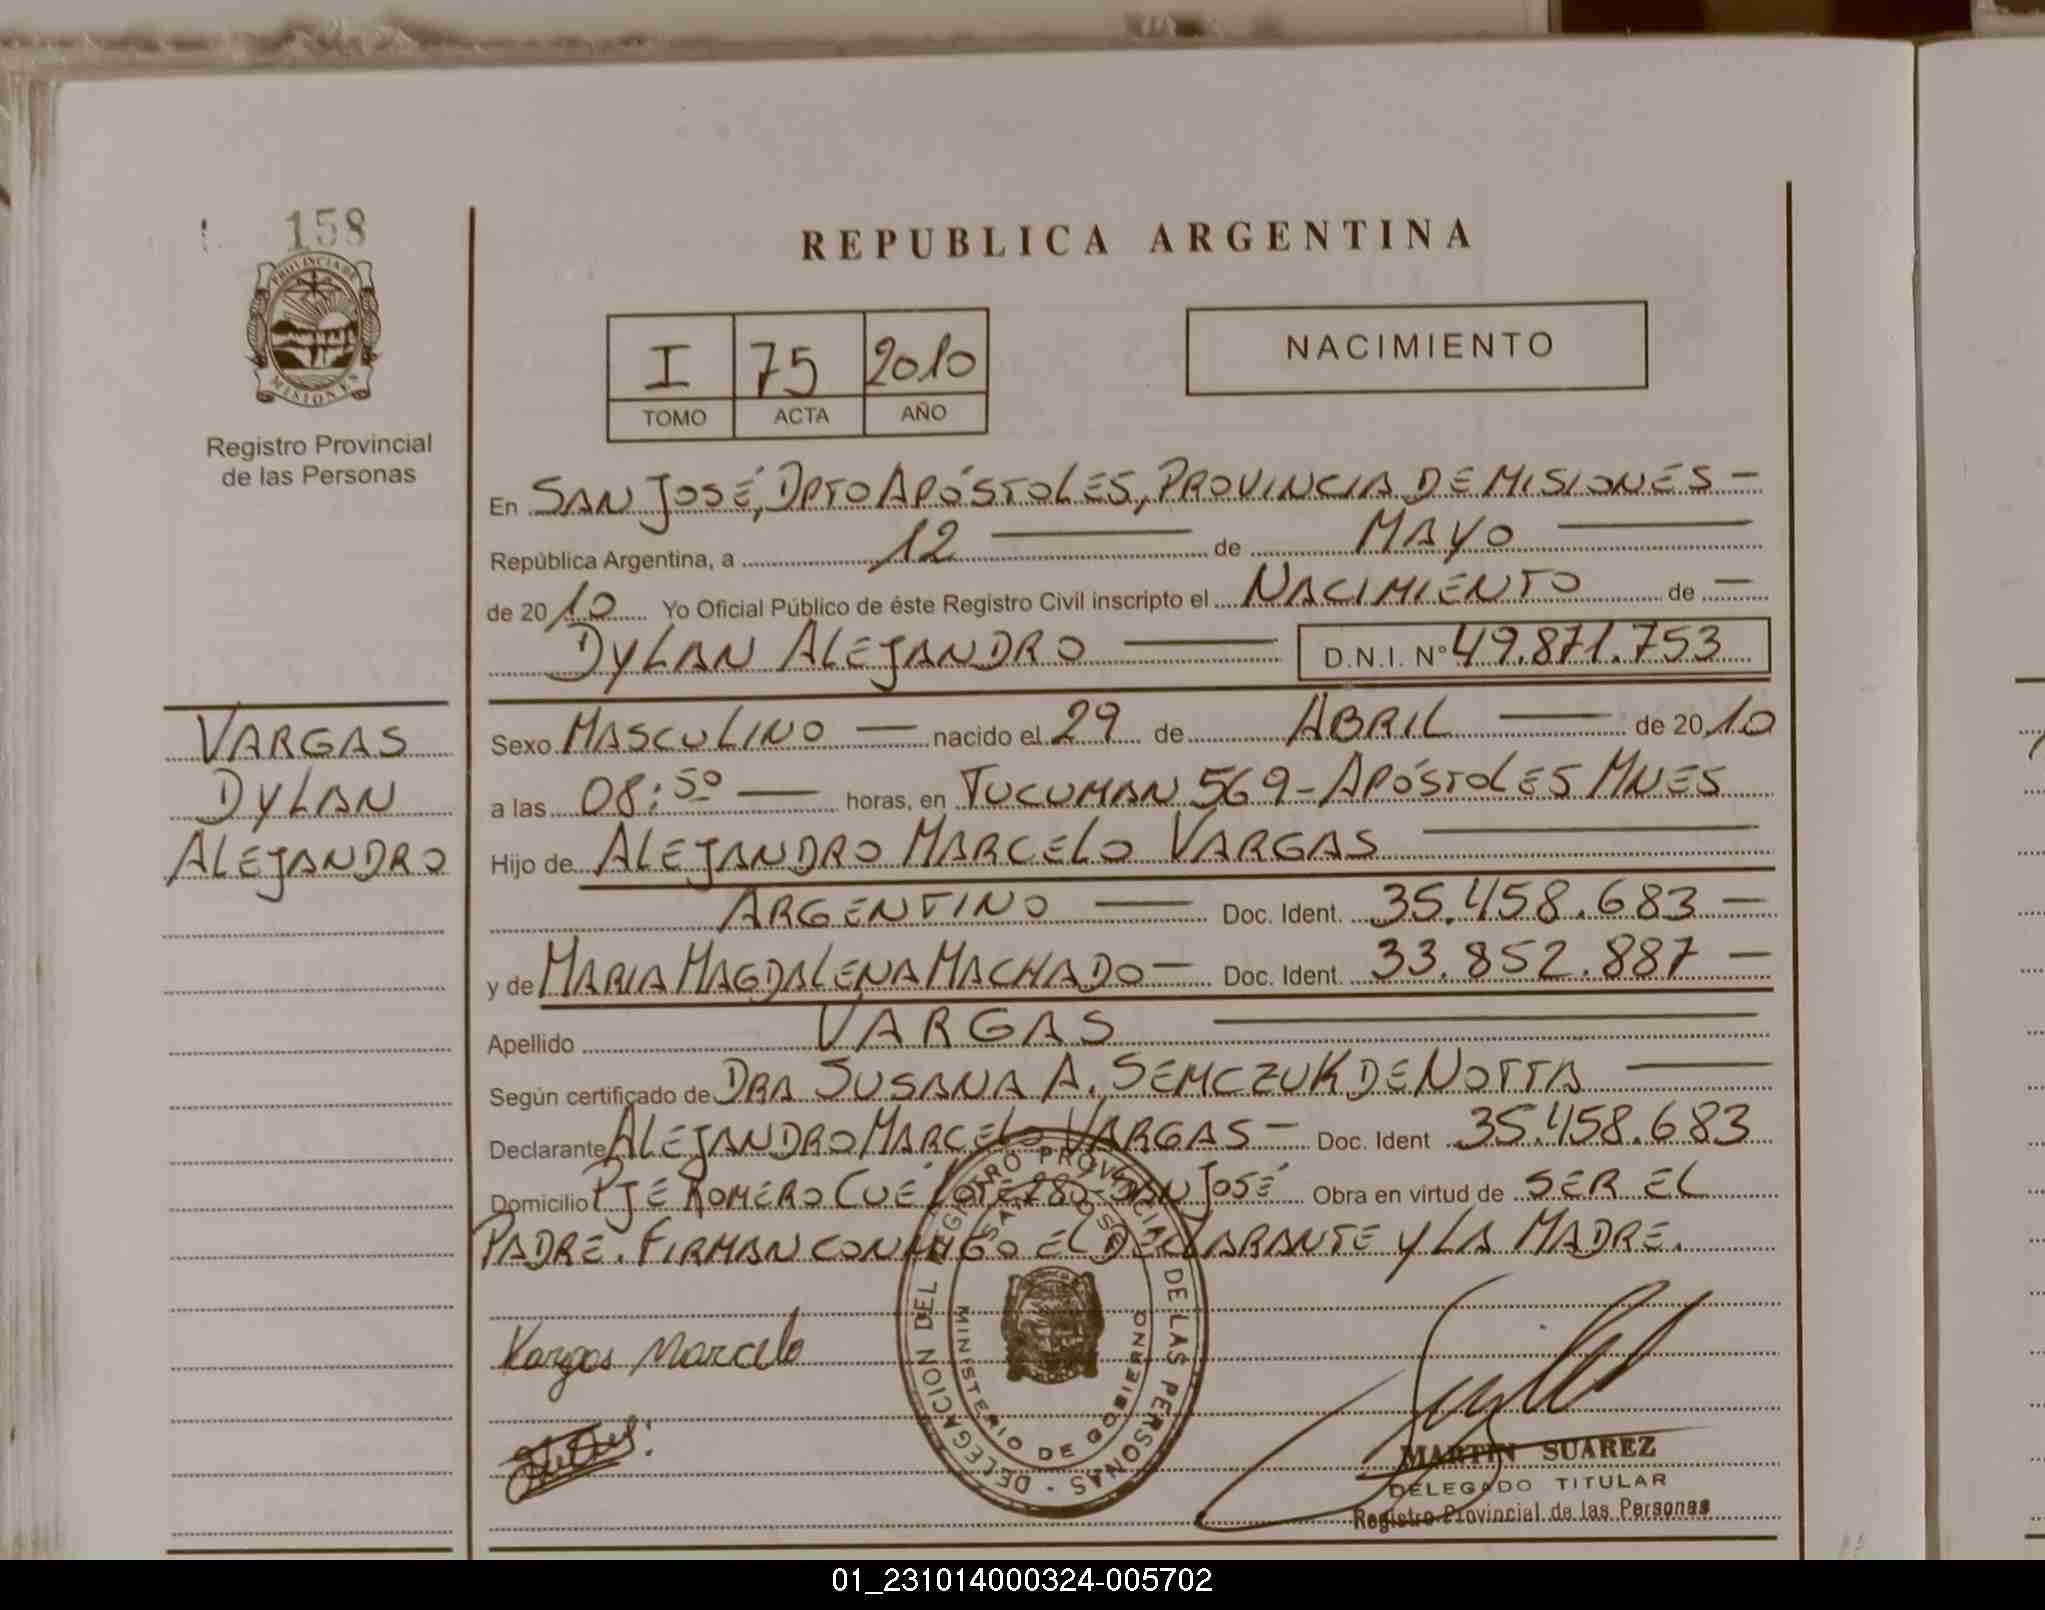 158
PROVINCIA DE
MISIONES
Registro Provincial
de las Personas
VARGAS
DYLAN
ALEJANDRO
REPUBLICA ARGENTINA
I 75 2010
TOMO ACTA AÑO
NACIMIENTO
En SAN JOSÉ, DPTO APÓSTOLES, PROVINCIA DE MISIONES —
República Argentina, a 12 — de MAYO —
de 2010 Yo Oficial Público de éste Registro Civil inscripto el NACIMIENTO de —
DYLAN ALEJANDRO — D.N.I. Nº 49.871.753
Sexo MASCULINO — nacido el 29 de ABRIL — de 2010
a las 08:50 — horas, en TUCUMAN 569 - APÓSTOLES MNES
Hijo de ALEJANDRO MARCELO VARGAS —
ARGENTINO — Doc. Ident. 35.458.683 —
y de MARIA MAGDALENA MACHADO — Doc. Ident. 33.852.887 —
Apellido VARGAS —
Según certificado de DRA SUSANA A. SEMCZUK DE NOTTA —
Declarante ALEJANDRO MARCELO VARGAS — Doc. Ident 35.458.683
Domicilio PJE ROMERO CUÉ LOTE 280 - SAN JOSÉ Obra en virtud de SER EL
PADRE. FIRMAN CONMIGO EL DECLARANTE Y LA MADRE.
Vargas Marcelo
DELEGACION DEL REGISTRO PROVINCIAL DE LAS PERSONAS -
SAN JOSE
MINISTERIO DE GOBIERNO
MARTIN SUAREZ
DELEGADO TITULAR
Registro Provincial de las Personas
01_231014000324-005702